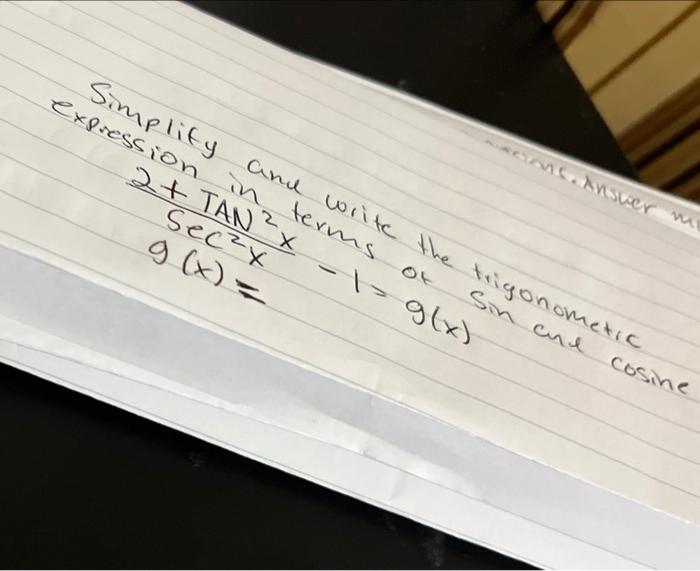 Answer
Simplify and write the trigonometric
expression in terms of Sin and cosine
2 + TAN²x
Sec²x
- 1 = g(x)
g(x) =